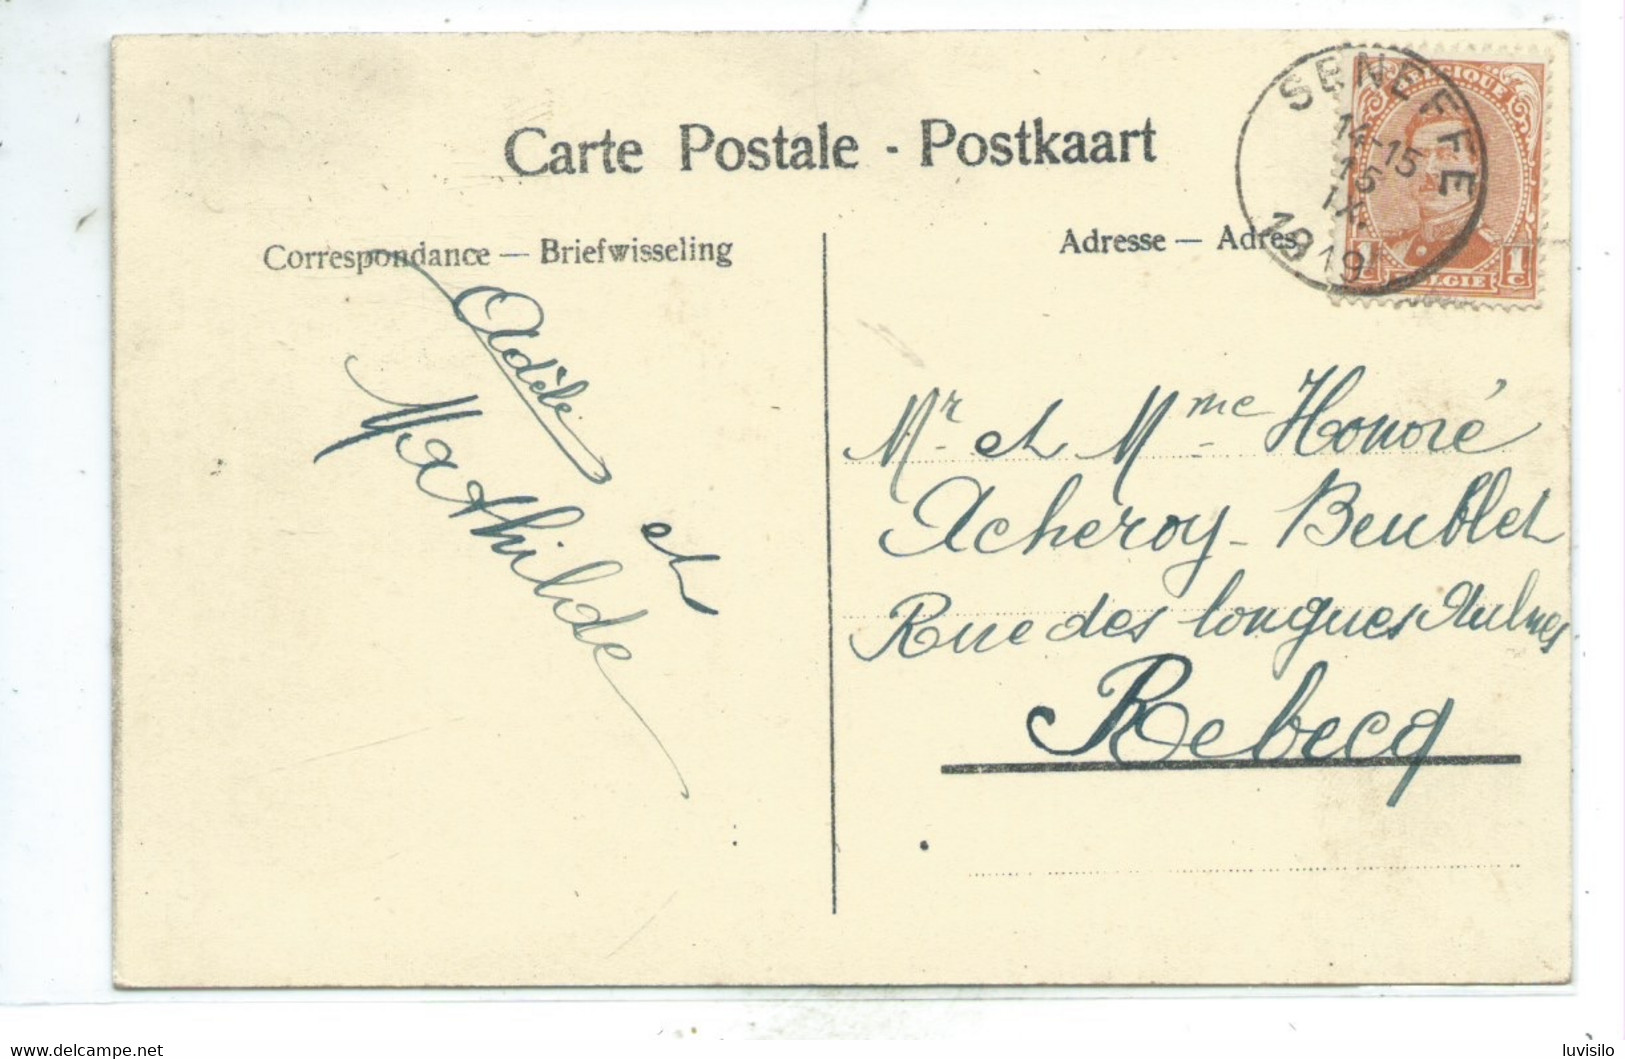 Carte Postale - Postkaart
Correspondance — Briefwisseling
Adresse — Adres
SENEFFE
14-15
15
IX
1919
BELGIQUE
1c
BELGIE
1c
Adèle
et
Mathilde
Mr et Mme Honoré
Acheroy - Beublet
Rue des longues Aulnes
Rebecq
delcampe.net
luvisilo